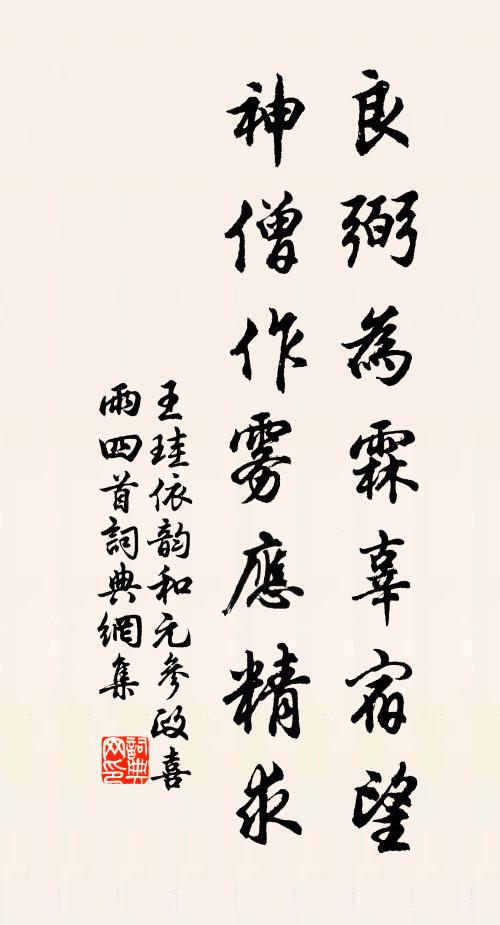 良弼為霖辜宿望
神僧作雾應精求
王珪依韵和元參政喜
雨四首詞典網集
詞典
网印